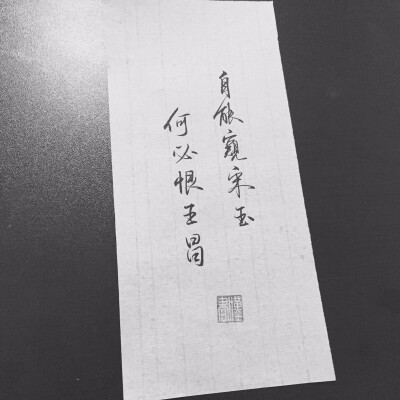 自能窥宋玉
何必恨王昌